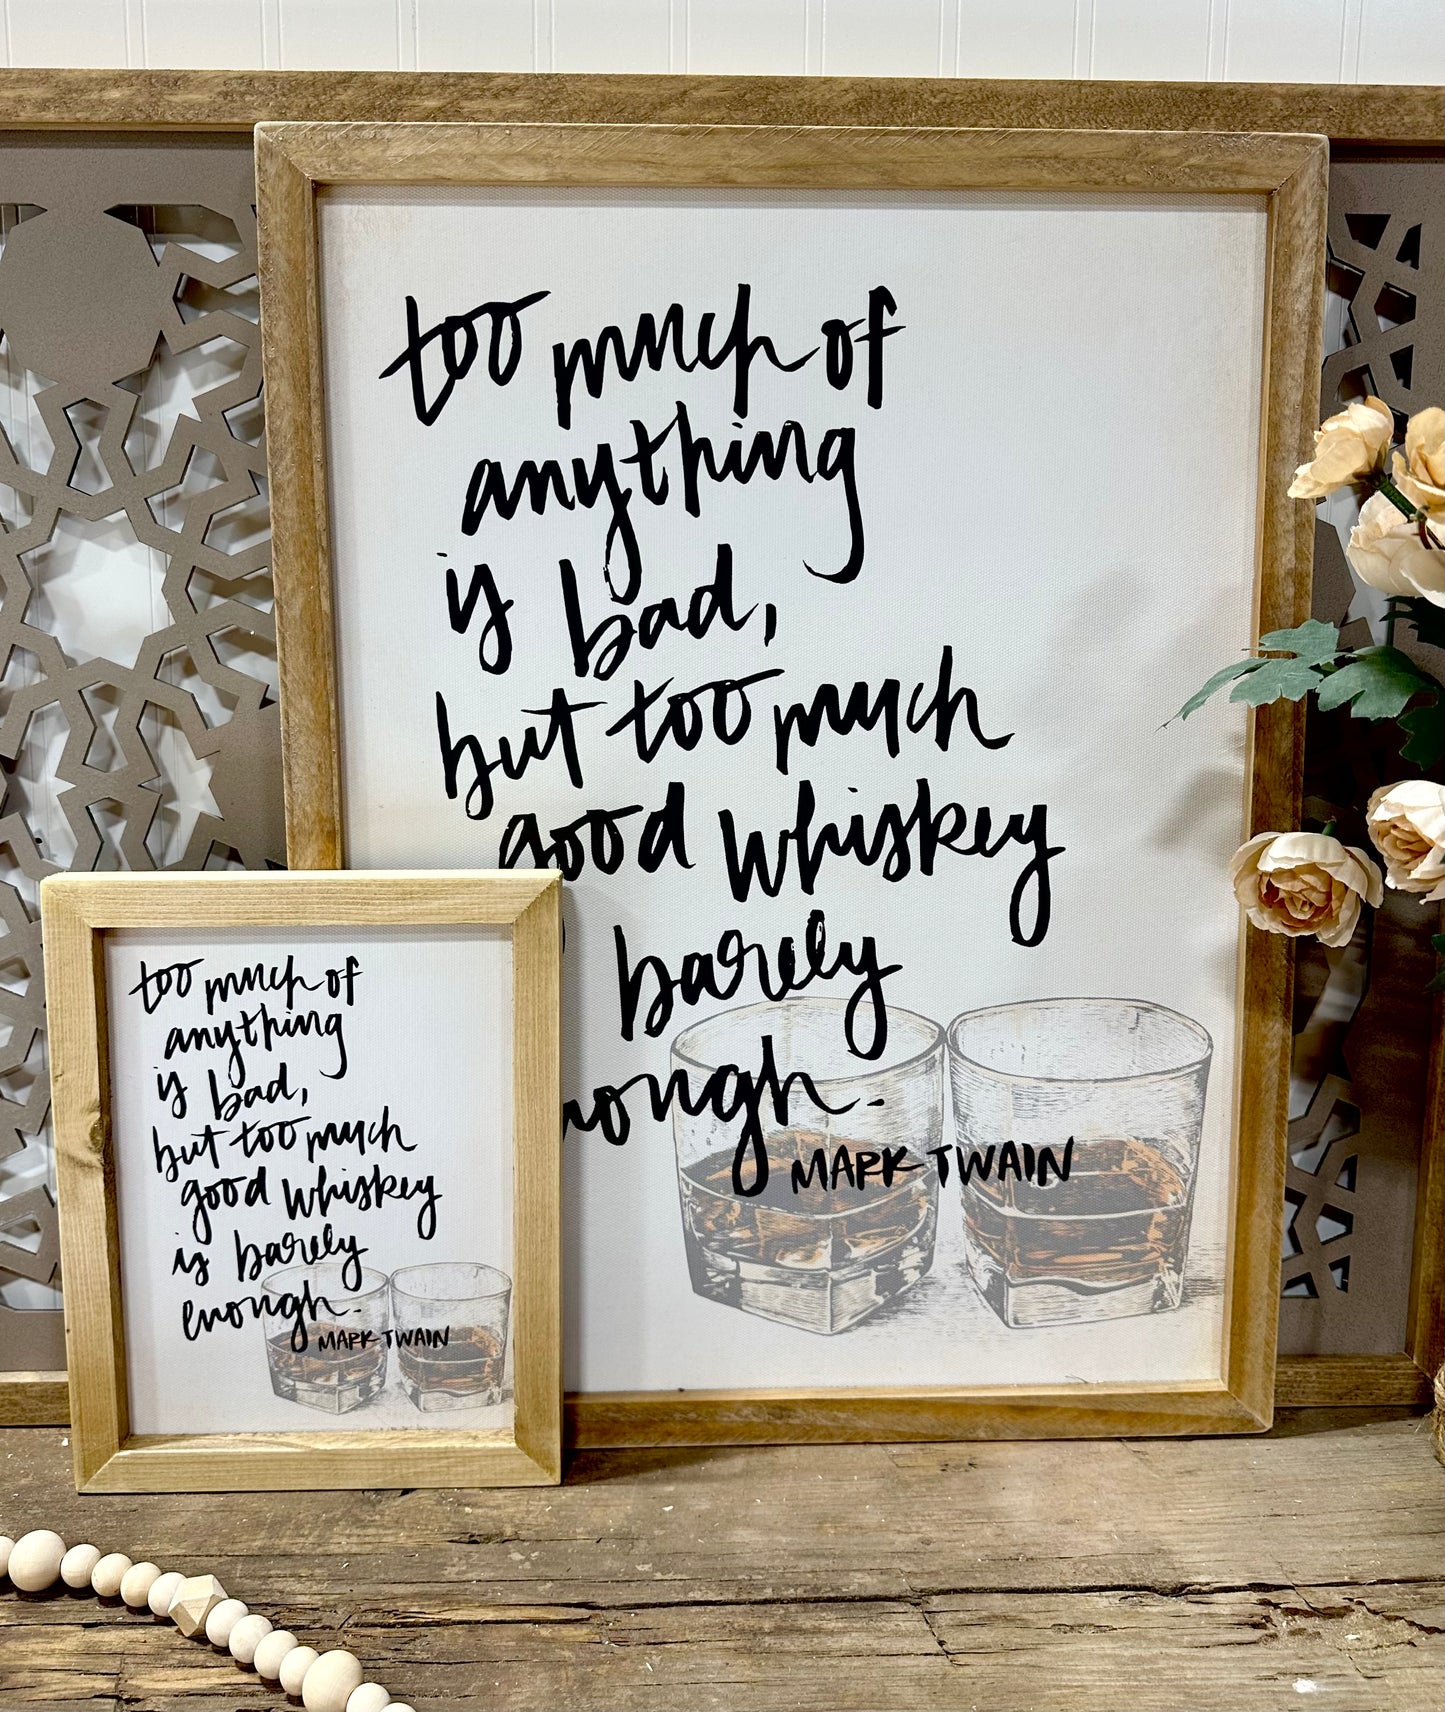 too much of
anything
is bad,
but too much
good whiskey
barely
nough.
MARK TWAIN
too much of
anything
is bad,
but too much
good whiskey
is barely
enough.
MARK TWAIN